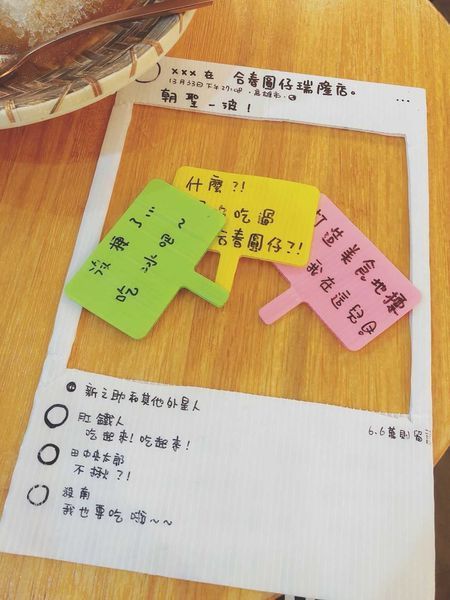 xxx 在 合春圓仔瑞隆店。
13月33日下午27:08 · 高雄市 ·
...
朝聖一波！
什麼?!
吃過
合春圓仔?!
沒種了…~
吃冰吧
打造美食地標
我在這兒
新之助和其他外星人
6.6萬則留
肛鐵人
吃起來!吃起來!
田中央太郎
不揪?!
我也要吃啦~~